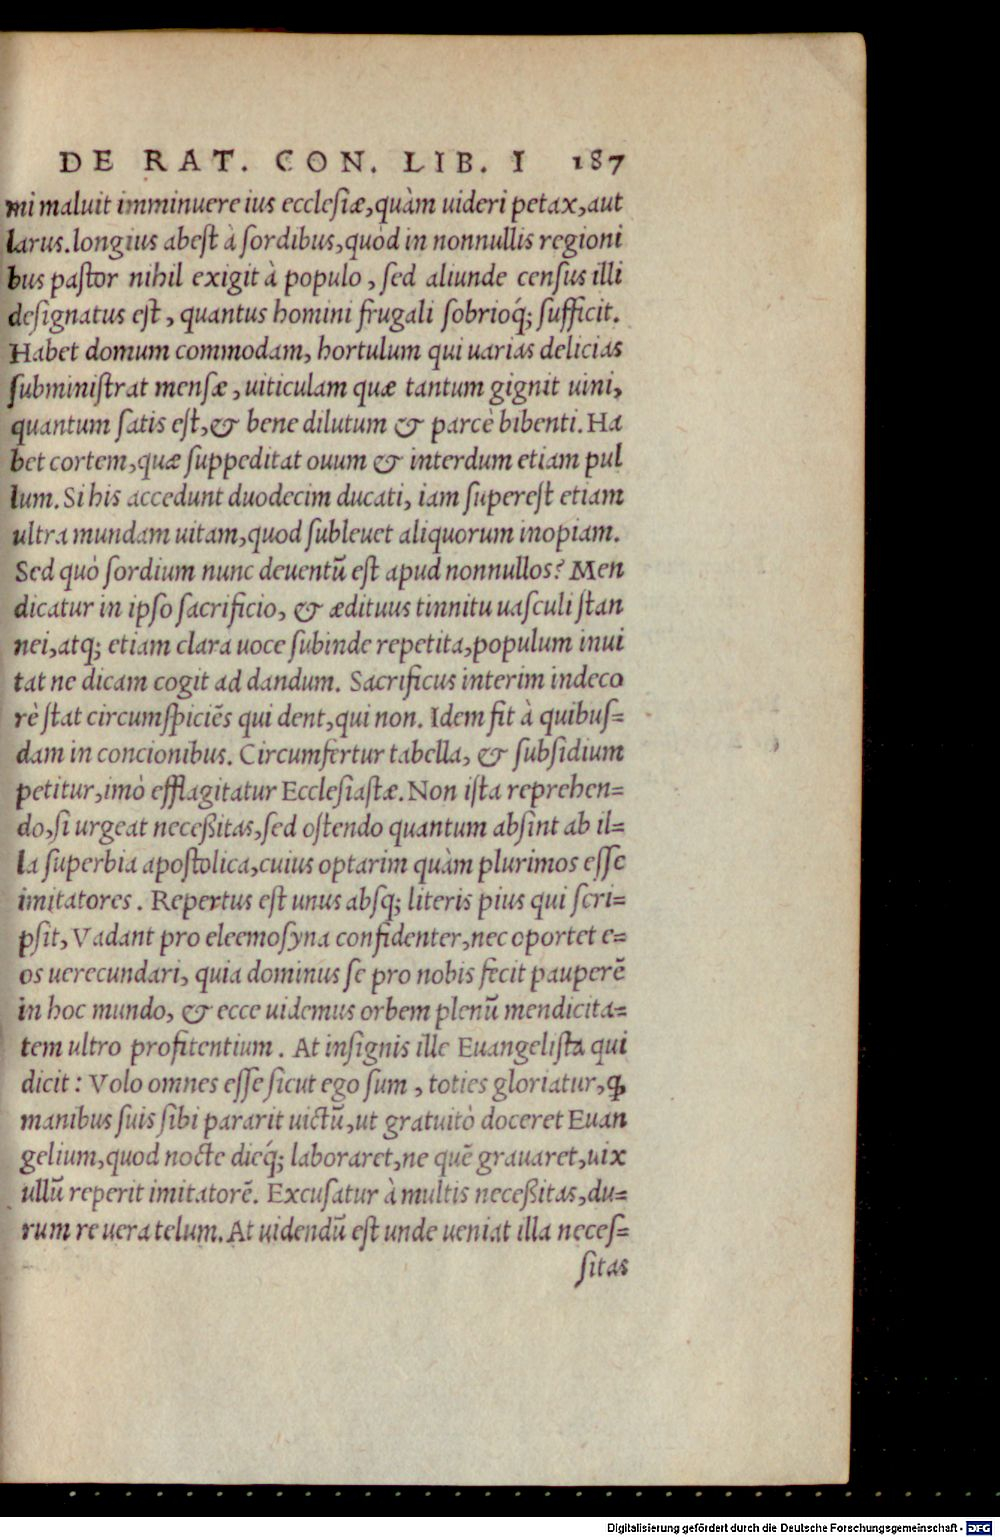 DE RAT. CON. LIB. I 187
mi maluit imminuere ius ecclesiæ,quàm uideri petax,aut
larus.longius abest à sordibus,quòd in nonnullis regioni
bus pastor nihil exigit à populo, sed aliunde census illi
designatus est, quantus homini frugali sobrioq́; sufficit.
Habet domum commodam, hortulum qui uarias delicias
subministrat mensæ, uiticulam quæ tantum gignit uini,
quantum satis est,& bene dilutum & parcè bibenti. Ha
bet cortem,quæ suppeditat ouum & interdum etiam pul
lum. Si his accedunt duodecim ducati, iam superest etiam
ultra mundam uitam,quod subleuet aliquorum inopiam.
Sed quò sordium nunc deuentũ est apud nonnullos? Men
dicatur in ipso sacrificio, & ædituus tinnitu uasculi stan
nei,atq; etiam clara uoce subinde repetita,populum inui
tat ne dicam cogit ad dandum. Sacrificus interim indeco
rè stat circumspiciẽs qui dent,qui non. Idem fit à quibus=
dam in concionibus. Circumfertur tabella, & subsidium
petitur,imò efflagitatur Ecclesiastæ. Non ista reprehen=
do,si urgeat neceßitas,sed ostendo quantum absint ab il=
la superbia apostolica,cuius optarim quàm plurimos esse
imitatores. Repertus est unus absq; literis pius qui scri=
psit, Vadant pro eleemosyna confidenter,nec oportet e=
os uerecundari, quia dominus se pro nobis fecit pauperẽ
in hoc mundo, & ecce uidemus orbem plenũ mendicita=
tem ultro profitentium. At insignis ille Euangelista qui
dicit: Volo omnes esse sicut ego sum, toties gloriatur,ꝙ
manibus suis sibi pararit uictũ,ut gratuitò doceret Euan
gelium,quod nocte dieq́; laboraret,ne quẽ grauaret,uix
ullũ reperit imitatorẽ. Excusatur à multis neceßitas,du=
rum re uera telum. At uidendũ est unde ueniat illa neces=
sitas
Digitalisierung gefördert durch die Deutsche Forschungsgemeinschaft - DFG